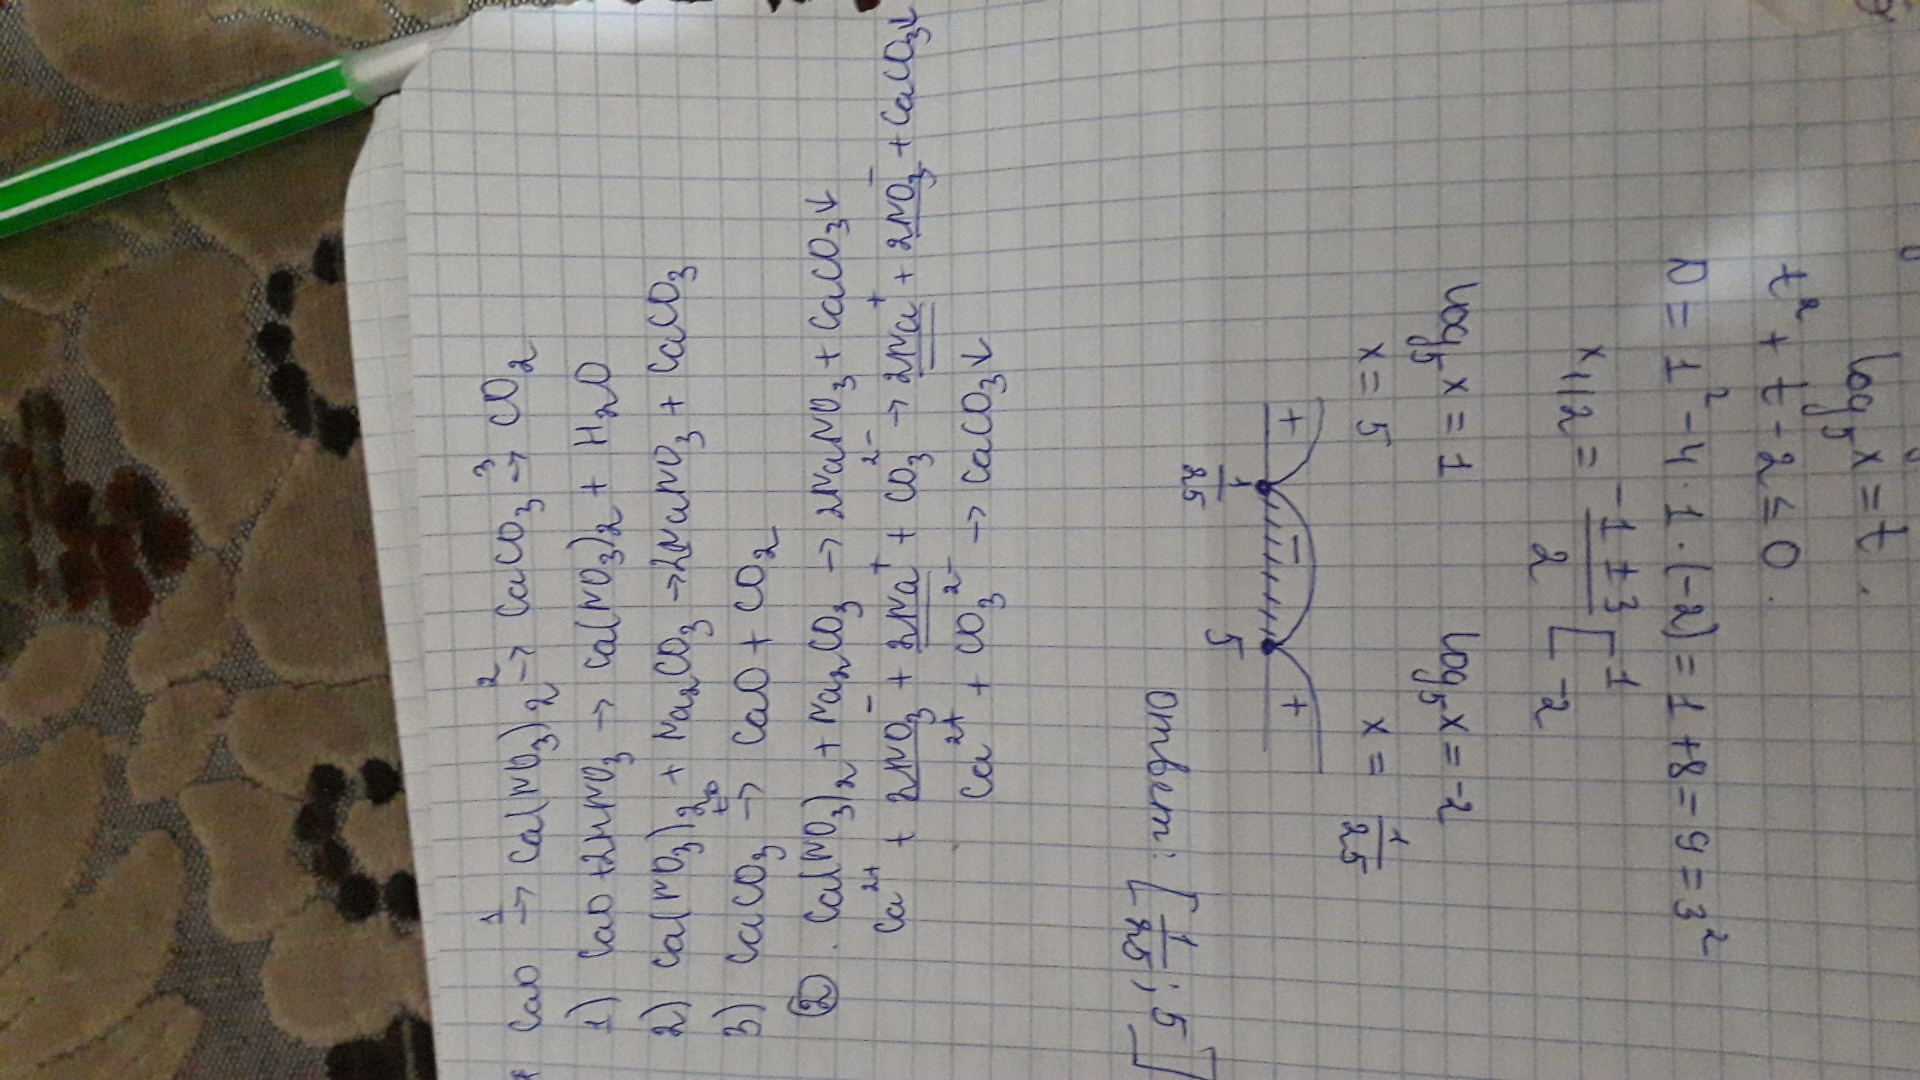 CaO →¹ Ca(NO₃)₂ →² CaCO₃ →³ CO₂
1) CaO + 2HNO₃ → Ca(NO₃)₂ + H₂O
2) Ca(NO₃)₂ + Na₂CO₃ → 2NaNO₃ + CaCO₃
3) CaCO₃ →ᵗ° CaO + CO₂
② . Ca(NO₃)₂ + Na₂CO₃ → 2NaNO₃ + CaCO₃↓
Ca²⁺ + 2NO₃⁻ + 2Na⁺ + CO₃²⁻ → 2Na⁺ + 2NO₃⁻ + CaCO₃↓
Ca²⁺ + CO₃²⁻ → CaCO₃↓
log₅x = t .
t² + t - 2 ≤ 0 .
D = 1² - 4 · 1 · (-2) = 1 + 8 = 9 = 3²
x₁,₂ = (-1 ± 3)/2 [ 1
-2
log₅x = 1 log₅x = -2
x = 5 x = 1/25
+ − +
1/25 5
Ответ: [1/25; 5]